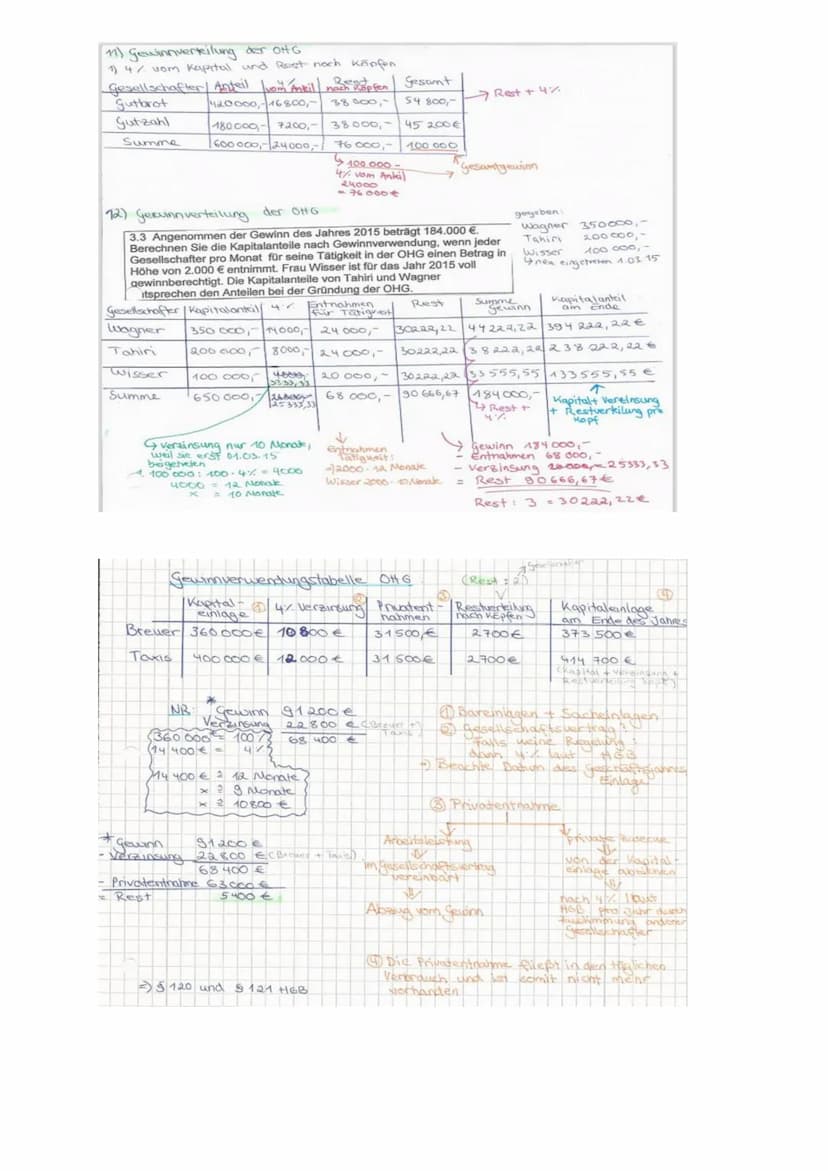 11) Gewinnverteilung der OHG
1) 4% vom Kapital und Rest nach Köpfen
Gesellschafter Anteil 4% vom Anteil Rest nach Köpfen Gesamt
Gutbrot 420000,- 16800,- 38 000,- 54 800,-
→ Rest + 4%
Gutzahl 180000,- 7200,- 38000,- 45 200€
Summe 600000,- 24000,- 76 000,- 100 000
↳ 100 000 -
4% vom Anteil
24000
= 76 000€
→ Gesamtgewinn
12) Gewinnverteilung der OHG
gegeben:
Wagner 350000,-
Tahiri 200 000,-
Wisser 100 000,-
↳ neu eingetreten 1.03.15
3.3 Angenommen der Gewinn des Jahres 2015 beträgt 184.000 €.
Berechnen Sie die Kapitalanteile nach Gewinnverwendung, wenn jeder
Gesellschafter pro Monat für seine Tätigkeit in der OHG einen Betrag in
Höhe von 2.000 € entnimmt. Frau Wisser ist für das Jahr 2015 voll
gewinnberechtigt. Die Kapitalanteile von Tahiri und Wagner
itsprechen den Anteilen bei der Gründung der OHG.
Gesellschafter Kapitalanteil 4% Entnahmen für Tätigkeit Rest Summe gewinn Kapitalanteil am Ende
Wagner 350 000,- 14000,- 24 000,- 30222,22 44222,22 394 222,22€
Tahiri 200 000,- 8000,- 24 000,- 30222,22 38222,22 238 222,22€
Wisser 100 000,- 4000,- 3333,33 20 000,- 30222,22 33555,55 133555,55 €
Summe 650 000,- 25333,33 68 000,- 90 666,67 184000,-
↳ Rest +
4%
Kapital + Verzinsung
+ Restverteilung pro
Kopf
↳ Verzinsung nur 10 Monate,
weil sie erst 01.03.15
beigetreten
100 000 : 100 · 4% = 4000
4000 = 12 Monate
x = 10 Monate
Entnahmen
Tätigkeit:
→ 2000 · 12 Monate
Wisser 2000 · 10 Monate
Gewinn 184 000,-
- Entnahmen 68 000,-
- Verzinsung 25333,33
= Rest 90 666,67€
Rest : 3 = 30222,22€
Gewinnverwendungstabelle OHG
(Rest : 2)
Gesellschafter
Kapitaleinlage ① 4% Verzinsung ② Privatentnahmen ③ Restverteilung nach Köpfen Kapitaleinlage am Ende des Jahres ④
Breuer 360 000€ 10 800 € 31500,€ 2700€ 373 500€
Taxis 400 000 € 12 000 € 31 500€ 2700€ 414 700 €
(Kapital + Verzinsung +
Restverteilung
NR: * Gewinn 91 200 €
Verzinsung 22 800 € (Breuer + Taxis)
68 400 €
360 000€ = 100 %
14 400€ = 4%
14 400 € ≙ 12 Monate
x ≙ 9 Monate
x ≙ 10800 €
① Bareinlagen + Sacheinlagen
② Gesellschaftsvertrag?
Falls keine Regelung:
dann 4% laut HGB
→ Beachte Datum des Geschäftsjahres
Einlage
③ Privatentnahme
Arbeitsleistung
im Gesellschaftsvertrag
vereinbart
Abzug vom Gewinn
Private Zwecke
von der Kapital-
einlage abziehen
nach 4% laut
HGB pro Jahr durch
Zustimmung anderer
Gesellschafter
* Gewinn 91200 €
- Verzinsung 22800 € (Breuer + Taxis)
68 400 €
- Privatentnahme 63000 €
= Rest 5400 €
④ Die Privatentnahme fließt in den täglichen
Verbrauch und ist somit nicht mehr
vorhanden
⇒ § 120 und § 121 HGB